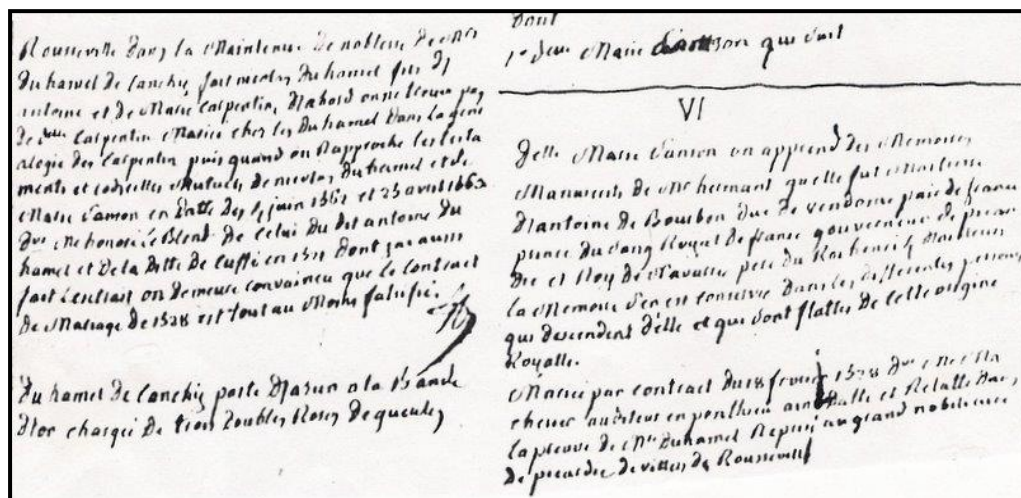 Rousseville dans la Maintenue de noblesse de Mrs
duhamel de Canchy fait nicolas duhamel fils d
antoine et de Marie Carpentin, d'abord on ne trouve pas
de Carpentin Mariée chez les duhamel dans la géné
alogie des Carpentin puis quand on Rapproche les testa
ments et codicilles Mutuels de nicolas duhamel et de
Marie Sanson en datte des juin 1562 et 23 avril 1663
honoré le Blond de Celui du dit antoine du
hamel et de la ditte de Cuffi en dont j'ai aussi
fait L'extrait on demeure convaincu que le Contract
de Mariage de 1528 est tout au Moins falsifié.
du hamel de Canchy porte d'azur a la Bande
d'or chargée de trois doubles Roses de gueules
dont
Marie qui suit
VI
delle Marie Sanson on apprend des Memoires
Manuscrits de Mr hermant quelle fut Maitresse
d'antoine de Bourbon duc de vendome pair de france
prince du Sang Royal de france gouverneur de picar
die et Roy de Navarre pere du Roi henri 4
la Memoire s'en est conservée dans les differentes personnes
qui descendent d'elle et qui sont flattés de Cette origine
Royalle.
Mariée par contract du 18 fevrier 1528
en ponthieu et Relatté dans
la preuve de Mrs Duhamel au grand nobiliaire
de picardie de villers de Rousseville